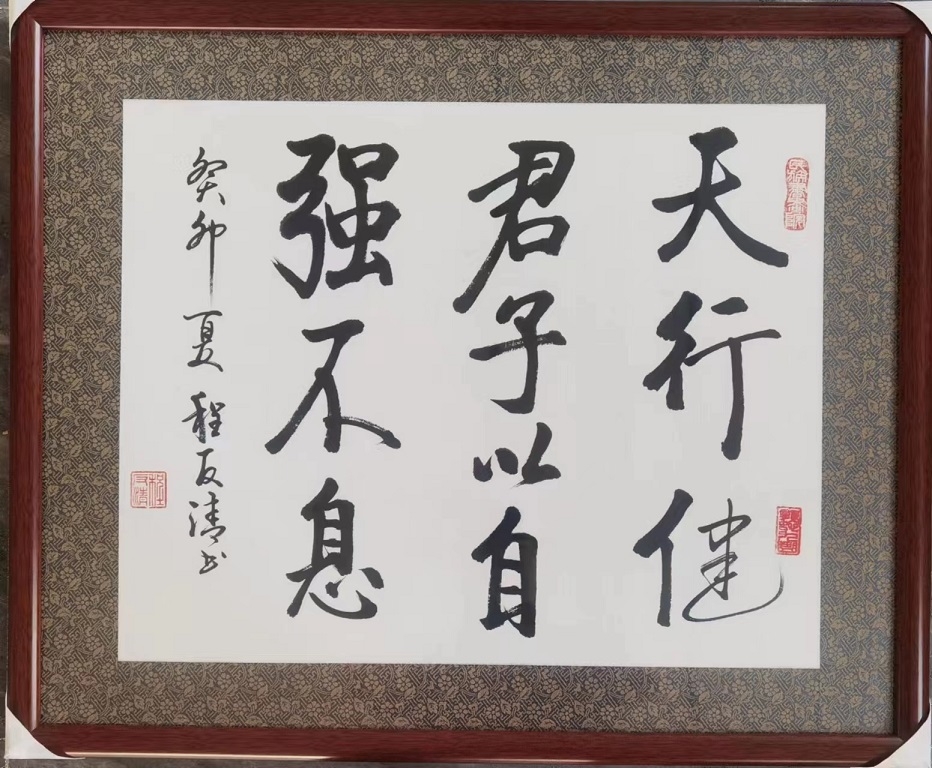 天行健
君子以自
强不息
癸卯夏程友清书